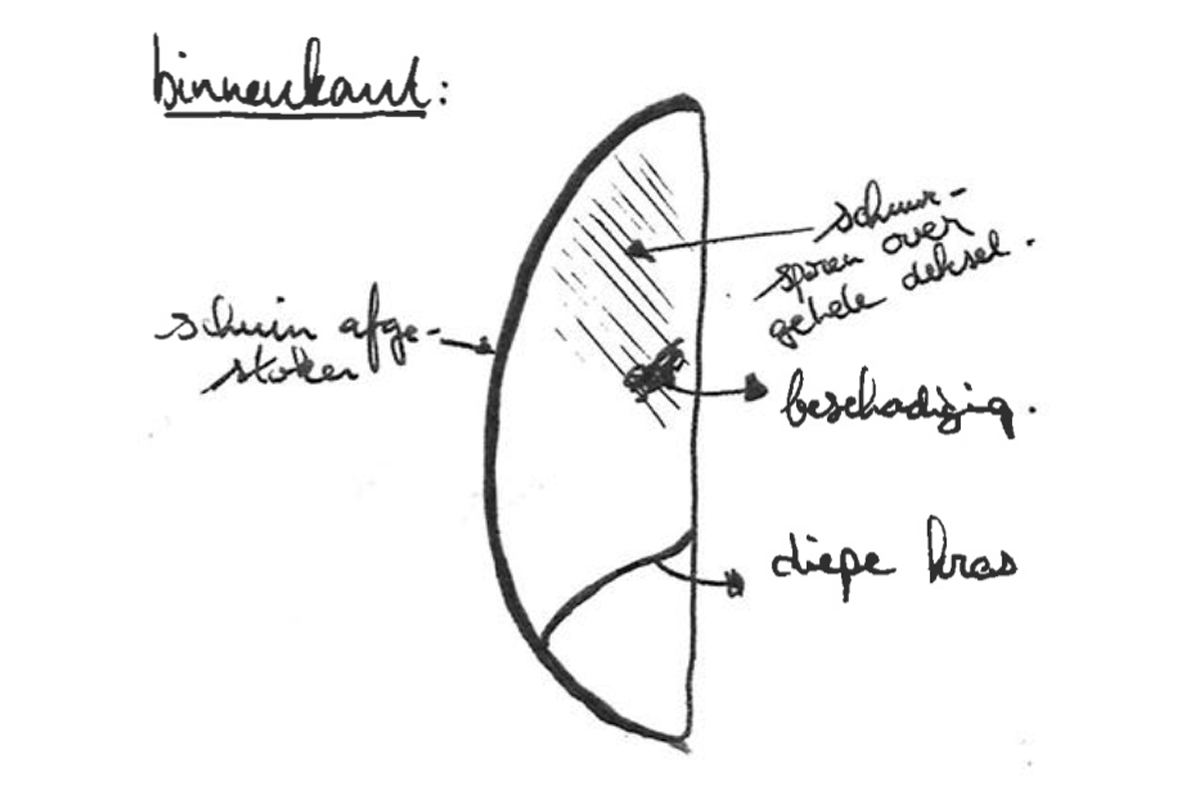 binnenkant:
schuur-
sporen over
gehele deksel.
schuin afge-
stoken
beschadiging.
diepe kras